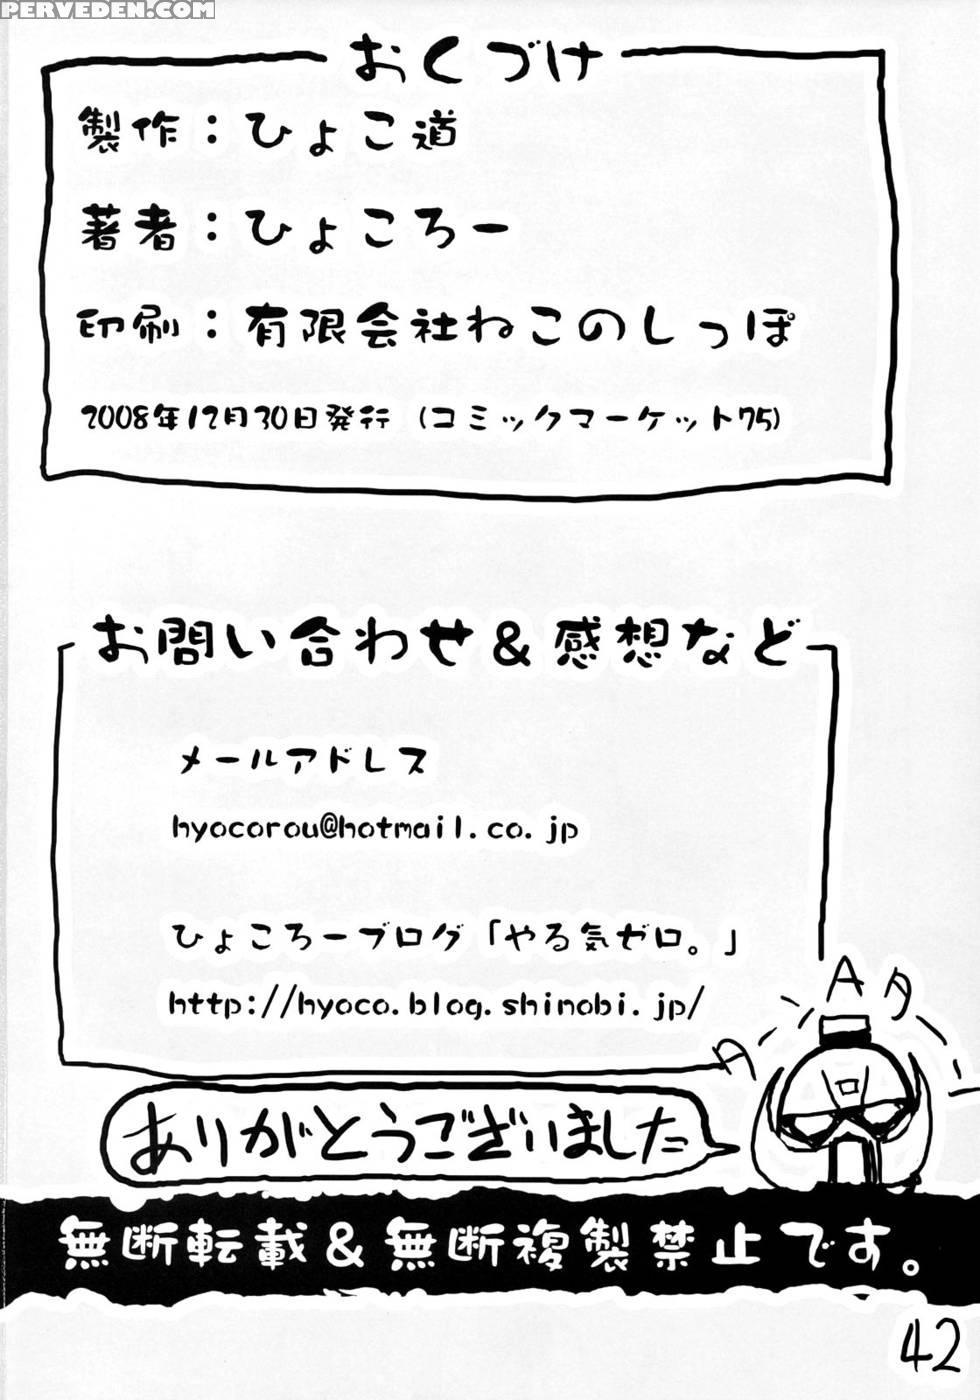 PERVEDEN.COM
おくづけ
製作：ひょこ道
著者：ひょころー
印刷：有限会社ねこのしっぽ
2008年12月30日発行 (コミックマーケット75)
お問い合わせ&感想など
メールアドレス
hyocorou@hotmail.co.jp
ひょころーブログ「やる気ゼロ。」
http://hyoco.blog.shinobi.jp/
ありがとうございました
無断転載&無断複製禁止です。
42